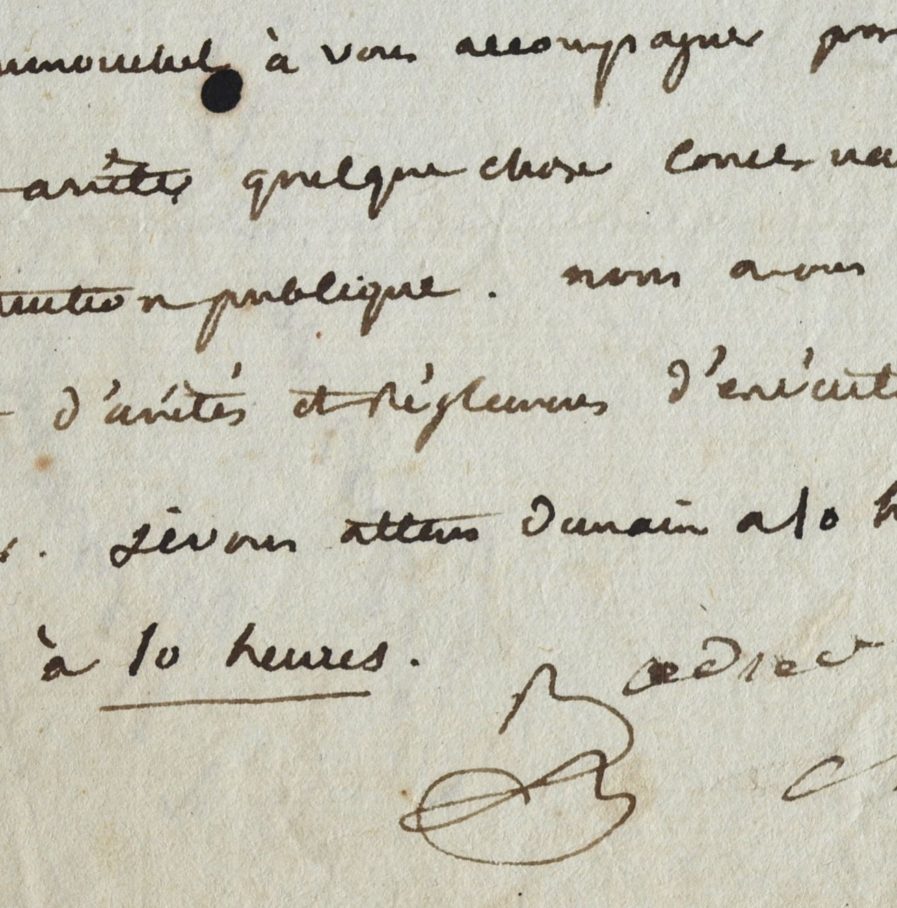 à vous accompagner pour
arrêter quelque chose concerna
truction publique. nous avons
d'arrêtés et Réglemens d'exécut
. Je vous attens Demain a 10 h
à 10 heures.